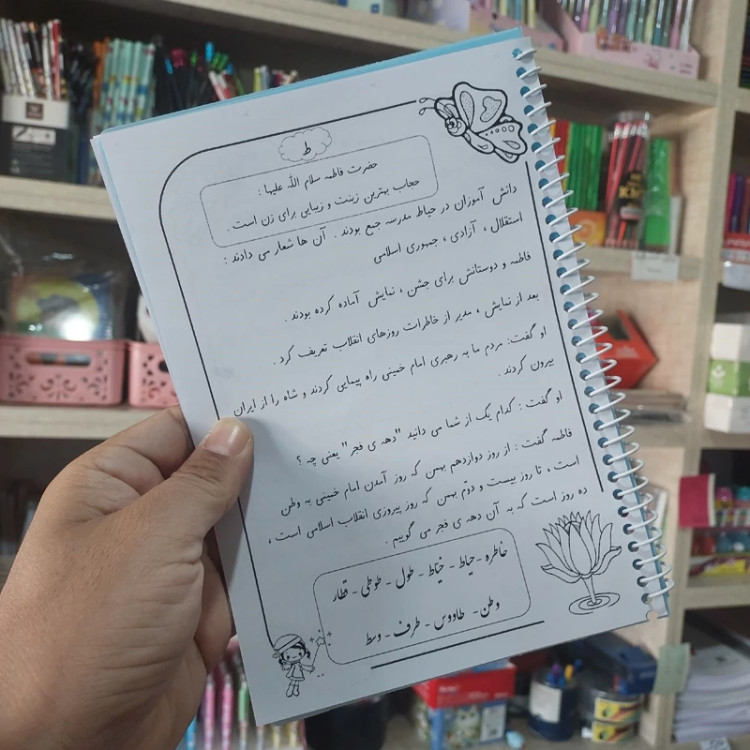 ط
حضرت فاطمه سلام الله علیها :
حجاب بهترین زینت و زیبایی برای زن است .
دانش آموزان در حیاط مدرسه جمع بودند . آن ها شعار می دادند :
استقلال ، آزادی ، جمهوری اسلامی
فاطمه و دوستانش برای جشن ، نمایش آماده کرده بودند .
بعد از نمایش ، مدیر از خاطرات روزهای انقلاب تعریف کرد .
او گفت: مردم ما به رهبری امام خمینی راه پیمایی کردند و شاه را از ایران
بیرون کردند .
او گفت : کدام یک از شما می دانید "دهه ی فجر" یعنی چه ؟
فاطمه گفت : از روز دوازدهم بهمن که روز آمدن امام خمینی به وطن
است ، تا روز بیست و دوّم بهمن که روز پیروزی انقلاب اسلامی است ،
ده روز است که به آن دهه ی فجر می گوییم .
خاطره - حیاط - خیّاط - طول - طوطی - قطار
وطن - طاووس - طرف - وسط